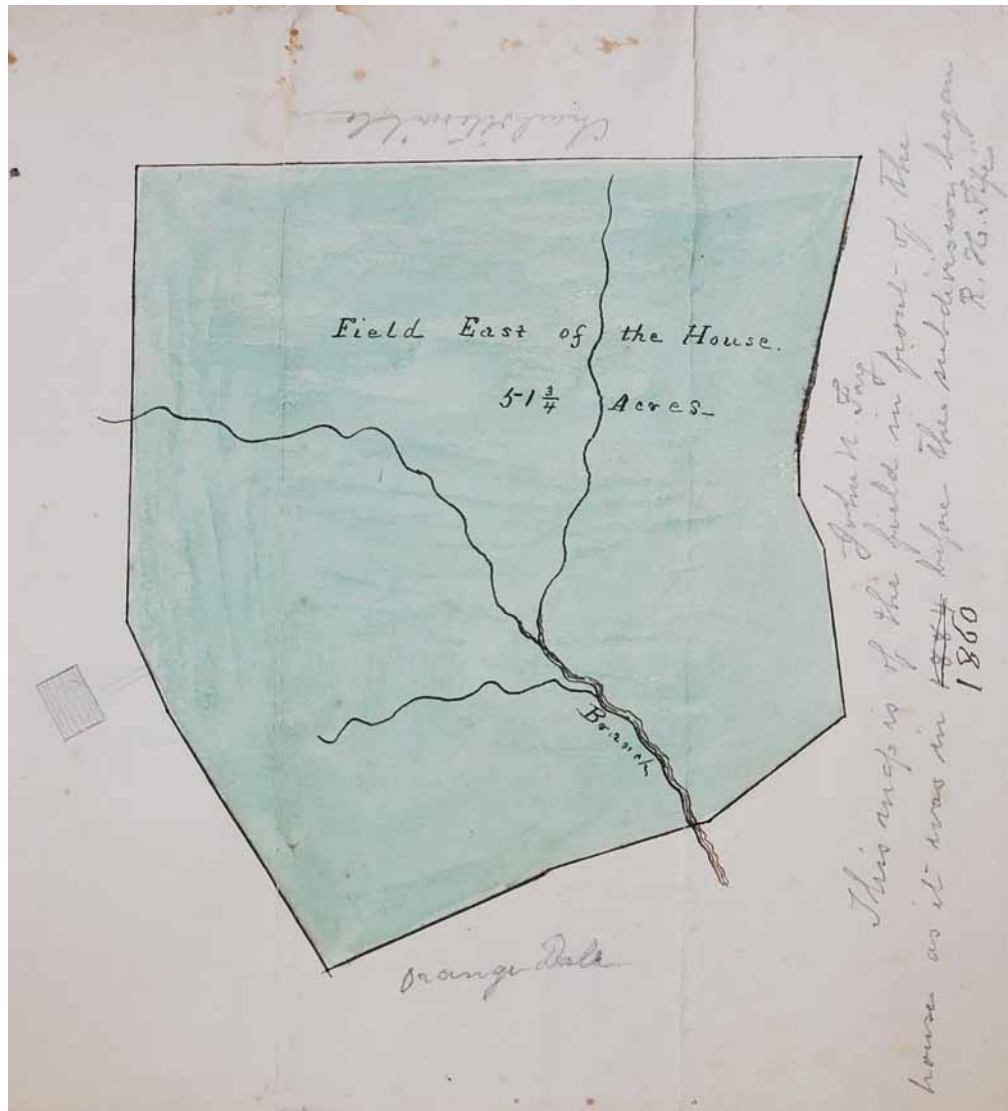 Charlottesville
Field East of the House.
51 3/4 Acres
Branch
Orange Dale
John N. Fay
This map is of the field in front of the
house as it was in 1884 before the subdivision began
1860
R. H. Fife